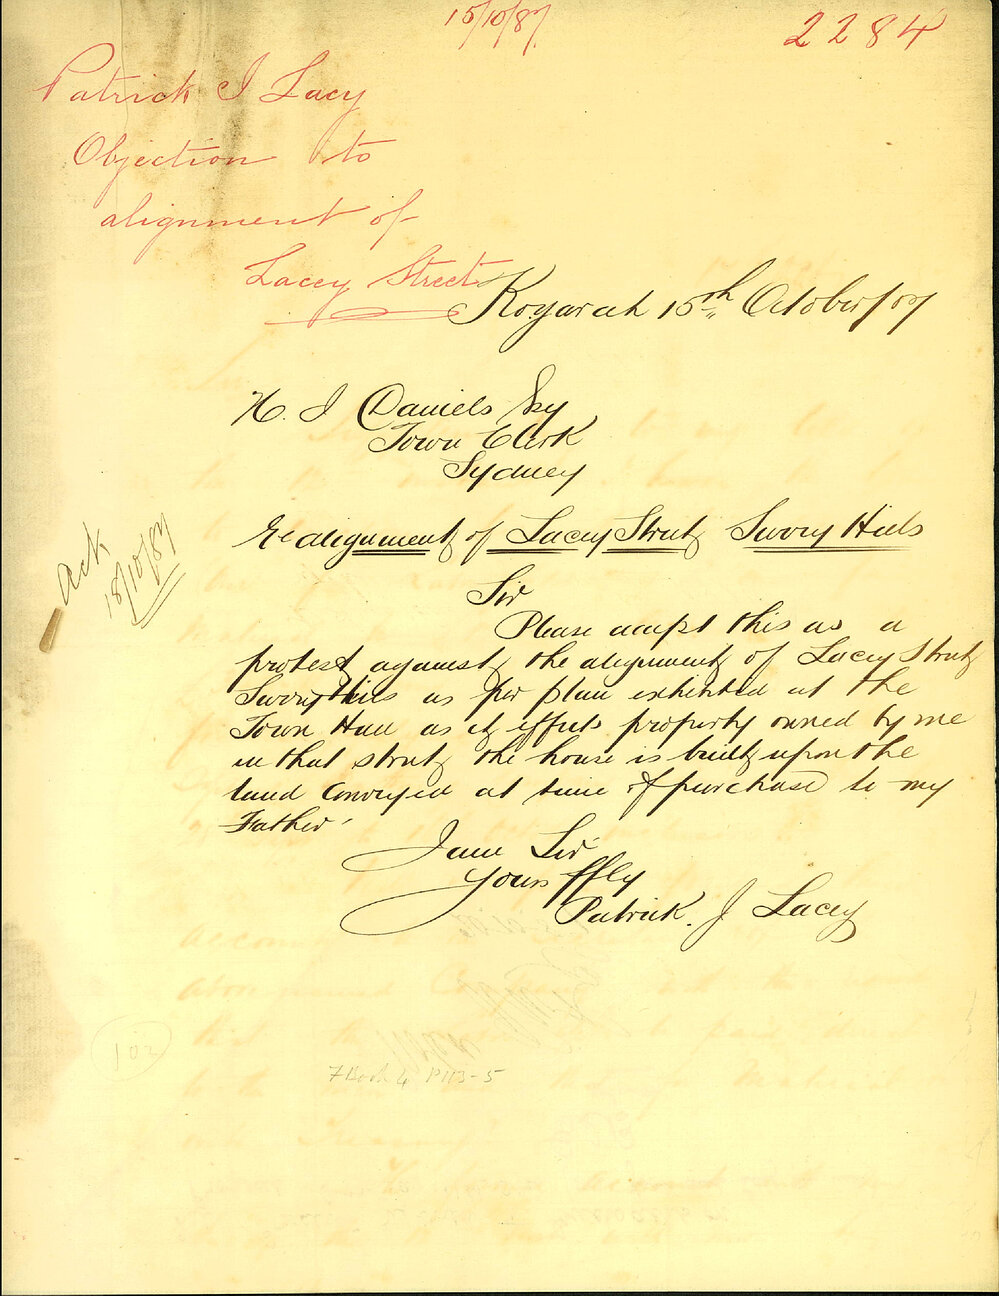 15/10/87
2284
Patrick J Lacy
Objection to
alignment of
Lacey Street
Kogarah 15th October/87
H. J Daniels Esq
Town Clerk
Sydney
Re alignment of Lacey Street Surry Hills
Ack
18/10/87
Sir
Please accept this as a
protest against the alignment of Lacey Street
Surry Hills as per plan exhibited at the
Town Hall as it effects property owned by me
in that street the house is built upon the
land conveyed at time of purchase to my
Father
I am Sir
Yours ffly
Patrick. J Lacey
102
7 Book 4 P113-5